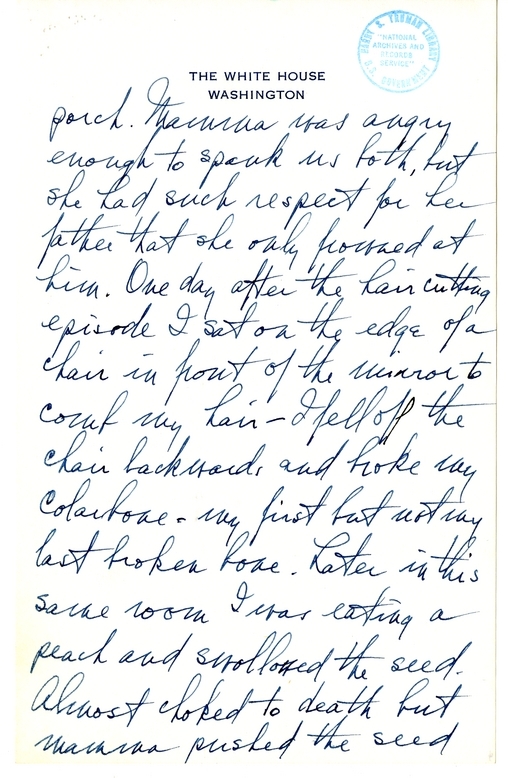 HARRY S. TRUMAN LIBRARY
"NATIONAL
ARCHIVES AND
RECORDS
SERVICE"
U.S. GOVERNMENT
THE WHITE HOUSE
WASHINGTON
porch. Mamma was angry
enough to spank us both, but
she had such respect for her
father that she only frowned at
him. One day after the hair cutting
episode I sat on the edge of a
chair in front of the mirror to
comb my hair – I fell off the
chair backwards and broke my
colarbone – my first but not my
last broken bone. Later in this
same room I was eating a
peach and swollowed the seed.
Almost choked to death but
mamma pushed the seed